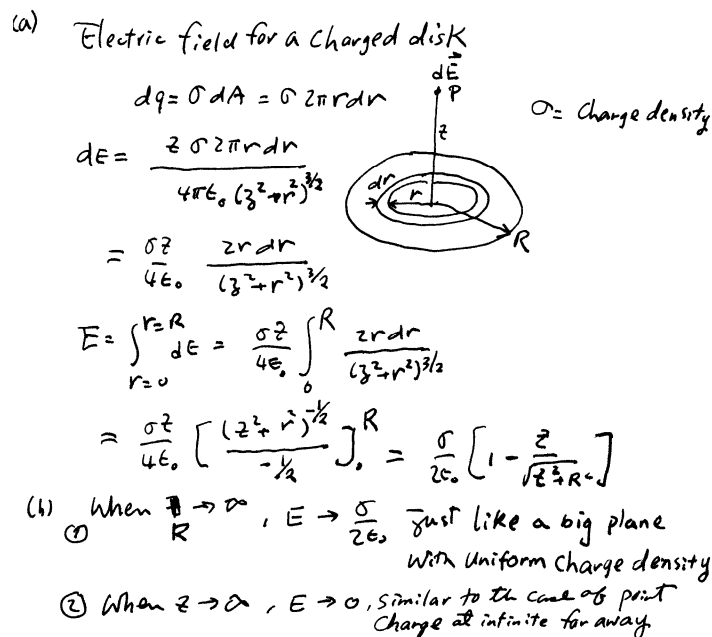 (a) Electric field for a charged disk
dE⃗
P
dq = σ dA = σ 2πr dr
σ = charge density
z
dE = z σ 2πr dr / 4πϵ₀ (z² + r²)^3/2
dr
r
R
= σz / 4ϵ₀ 2r dr / (z² + r²)^3/2
E = ∫_{r=0}^{r=R} dE = σz / 4ϵ₀ ∫_0^R 2r dr / (z² + r²)^3/2
= σz / 4ϵ₀ [ (z² + r²)^-1/2 / -1/2 ]_0^R = σ / 2ϵ₀ [ 1 - z / √(z² + R²) ]
(b) ① When R → ∞, E → σ / 2ϵ₀ Just like a big plane
with uniform charge density
② When z → ∞, E → 0, similar to the case of point
charge at infinite far away.